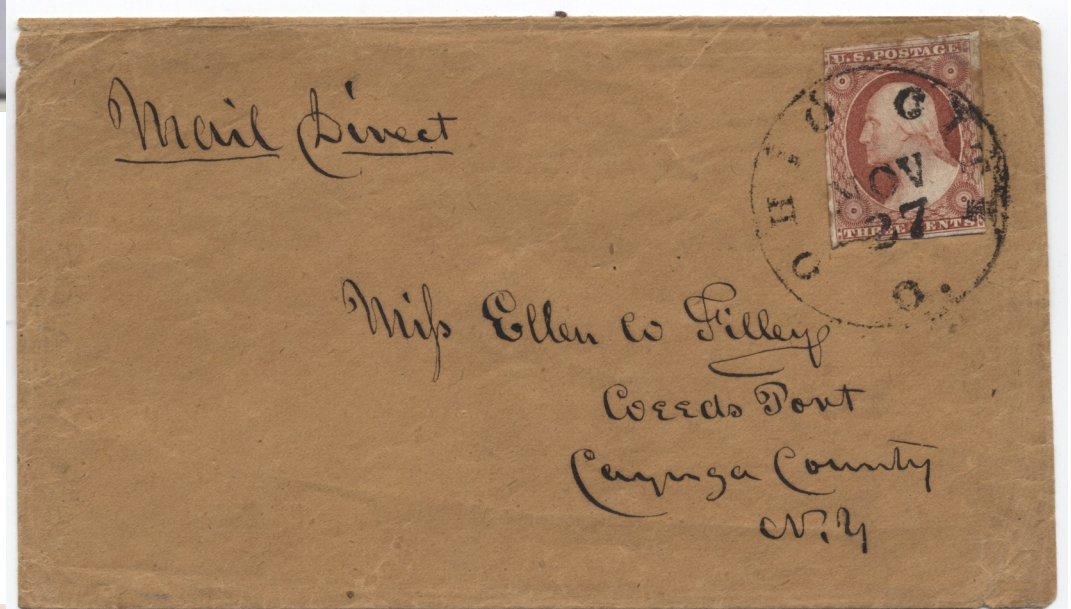 Mail Direct
U.S. POSTAGE
THREE CENTS
OHIO CITY
NOV
27
O.
Miss Ellen W Filley
Weeds Port
Cayuga County
N.Y